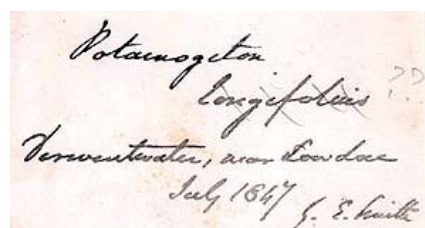 Potamogeton
longifolius ??
Derwentwater, near Lowdore
July 1847
G. E. Smith